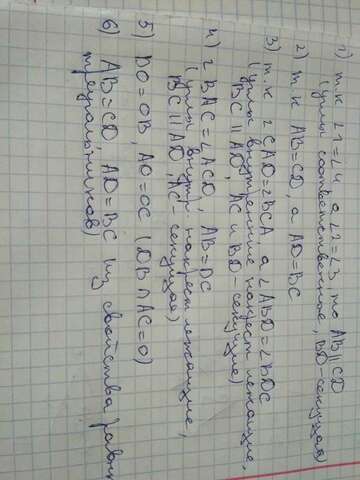 1) т.к ∠1=∠4, а ∠2=∠3, то AB∥CD
(углы соответственные, BD-секущая)
2) т к AB=CD, а AD=BC
3) т.к ∠CAD=∠BCA, а ∠ABD=∠BDC
(углы внутренние накрест лежащие,
BC∥AD, AC и BD-секущие)
4) ∠BAC=∠ACD, AB=DC
(углы внутр. накрест лежащие,
BC∥AD, AC-секущая)
5) DO=OB, AO=OC (DB∩AC=O)
6) AB=CD, AD=BC (из свойства равных
треугольников)